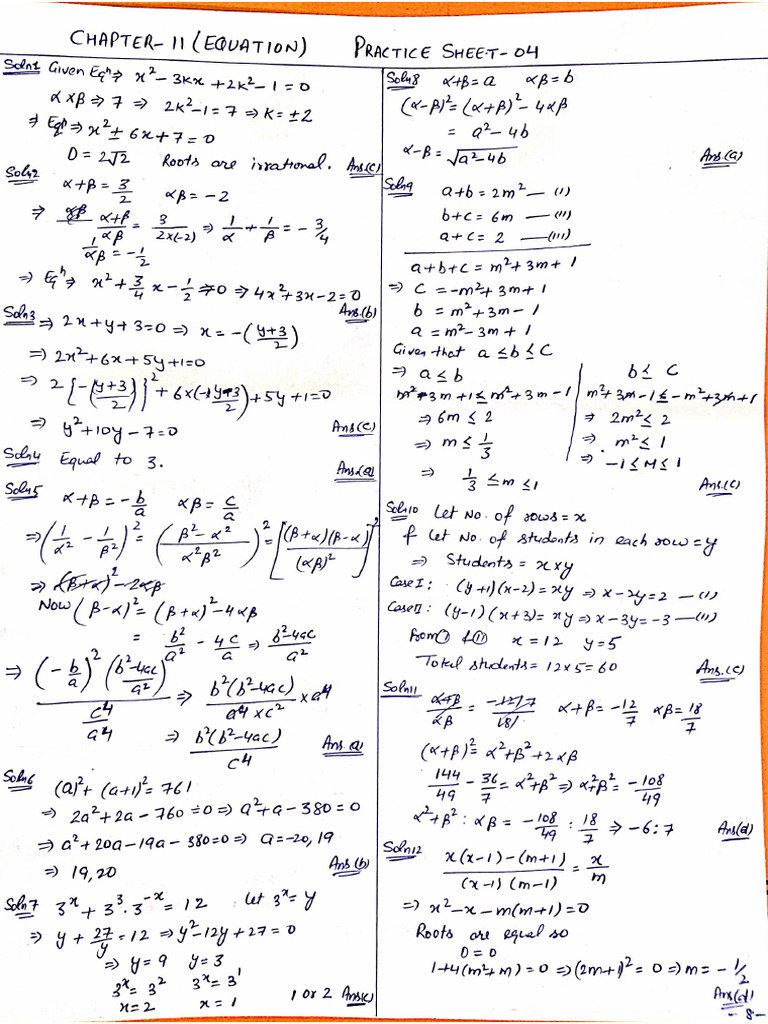 CHAPTER-11 (EQUATION) PRACTICE SHEET-04
Soln1 Given Eqⁿ⇒ x²-3Kx+2K²-1=0
α×β ⇒ 7 ⇒ 2K²-1=7 ⇒ K=±2
⇒ Eqⁿ ⇒ x²±6x+7=0
D=2√2 Roots are irrational. Ans.(c)
Soln2 α+β=3/2 αβ=-2
⇒ (α+β)/αβ = 3/(2×(-2)) ⇒ 1/α+1/β=-3/4
1/αβ=-1/2
⇒ Eqⁿ ⇒ x²+3/4 x-1/2=0 ⇒ 4x²+3x-2=0
Ans(b)
Soln3 ⇒ 2x+y+3=0 ⇒ x=-((y+3)/2)
⇒ 2x²+6x+5y+1=0
⇒ 2{-(y+3)/2}²+6×(-(y+3)/2)+5y+1=0
⇒ y²+10y-7=0 Ans(c)
Soln4 Equal to 3. Ans(a)
Soln5 α+β=-b/a αβ=c/a
⇒ (1/α²-1/β²)²=((β²-α²)/α²β²)²=[(β+α)(β-α)/(αβ)²]²
⇒ (β+α)²-2αβ
Now (β-α)²=(β+α)²-4αβ
= b²/a²-4c/a ⇒ (b²-4ac)/a²
⇒ (-b/a)²((b²-4ac)/a²)/(c⁴/a⁴) ⇒ b²(b²-4ac)/(a⁴×c²)×a⁴
⇒ b²(b²-4ac)/c⁴ Ans.(a)
Soln6 (a)²+(a+1)²=761
⇒ 2a²+2a-760=0 ⇒ a²+a-380=0
⇒ a²+20a-19a-380=0 ⇒ a=-20,19
⇒ 19,20 Ans(b)
Soln7 3ˣ+3³.3⁻ˣ=12 : let 3ˣ=y
⇒ y+27/y=12 ⇒ y²-12y+27=0
⇒ y=9 y=3
3ˣ=3² 3ˣ=3¹
x=2 x=1 1 or 2 Ans(c)
Soln8 α+β=a αβ=b
(α-β)²=(α+β)²-4αβ
= a²-4b
α-β=√(a²-4b) Ans(a)
Soln9 a+b=2m² —(i)
b+c=6m —(ii)
a+c=2 —(iii)
a+b+c=m²+3m+1
⇒ c=-m²+3m+1
b=m²+3m-1
a=m²-3m+1
Given that a≤b≤c
⇒ a≤b b≤c
m²-3m+1≤m²+3m-1 m²+3m-1≤-m²+3m+1
⇒ 6m≤2 ⇒ 2m²≤2
⇒ m≤1/3 ⇒ m²≤1
⇒ 1/3≤m≤1 ⇒ -1≤M≤1
Ans.(c)
Soln10 Let No. of rows=x
f let No. of students in each row=y
⇒ Students=x×y
Case I: (y+1)(x-2)=xy ⇒ x-2y=2 —(i)
Case II: (y-1)(x+3)=xy ⇒ x-3y=-3 —(ii)
from (i) & (ii) x=12 y=5
Total students=12×5=60 Ans.(c)
Soln11 (α+β)/αβ=(-12/7)/(18/) α+β=-12/7 αβ=18/7
(α+β)²=α²+β²+2αβ
144/49-36/7=α²+β² ⇒ α²+β²=-108/49
α²+β²:αβ=-108/49:18/7 ⇒ -6:7 Ans(d)
Soln12 (x(x-1)-(m+1))/((x-1)(m-1))=x/m
⇒ x²-x-m(m+1)=0
Roots are equal so
D=0
1+4(m²+m)=0 ⇒ (2m+1)²=0 ⇒ m=-1/2
Ans(d)
-8-